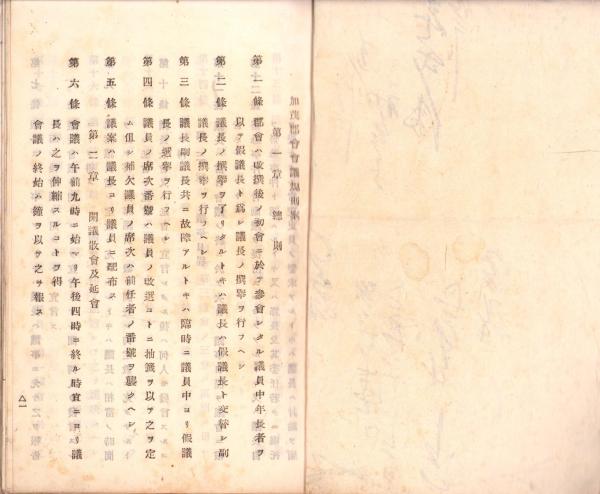 加茂郡會會議規則
第一章 總則
第一條 郡會ハ改撰後ノ初會ニ於テ參會シタル議員中年長者ヲ
以テ假議長ト爲シ議長ノ撰擧ヲ行フヘシ
第二條 議長ノ撰擧ヲ了リタルトキハ議長ハ假議長ト交替シ副
議長ノ撰擧ヲ行フヘシ
第三條 議長副議長共ニ故障アルトキハ臨時ニ議員中ヨリ假議
長ノ選擧ヲ行フヘシ
第四條 議員ノ席次番號ハ議員ノ改選コトニ抽籤ヲ以テ之ヲ定
ム但シ補欠議員ノ席次ハ前任者ノ番號ヲ襲クヘシ
第五條 議案ハ議長ヨリ議員ニ配布ス
第二章 開議散會及延會
第六條 會議ハ午前九時ニ始マリ午後四時ニ終ル時宜ニヨリ議
長ハ之ヲ伸縮スルコトヲ得
會議ノ終始ハ鐘ヲ以テ之ヲ報ス